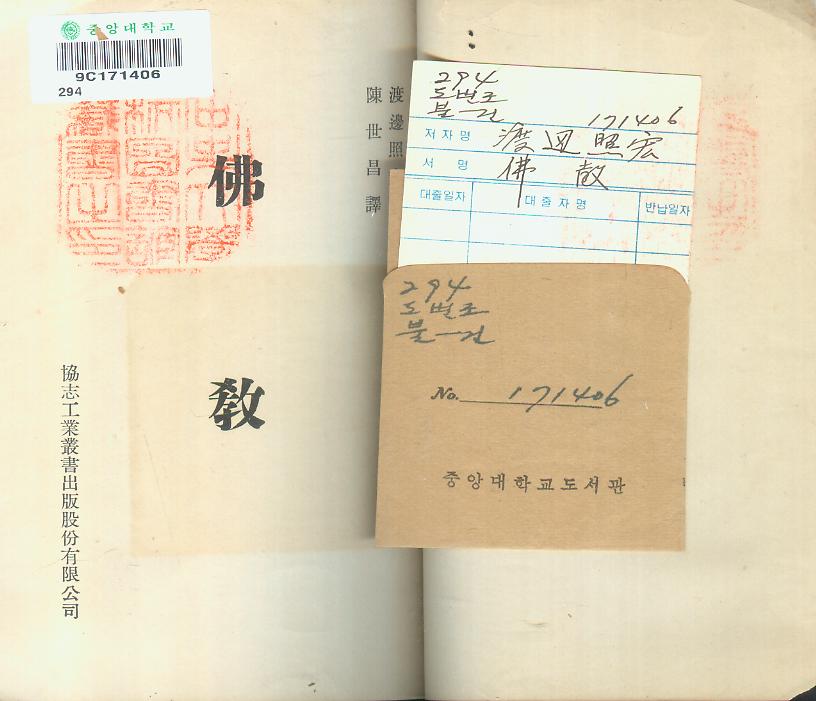 중앙대학교
9C171406
294
渡邊照
陳世昌 譯
佛
敎
協志工業叢書出版股份有限公司
294
도변조
171406
저 자 명 渡辺照宏
서 명 佛敎
대출일자 대출자명 반납일자
294
도변조
No. 171406
중앙대학교도서관